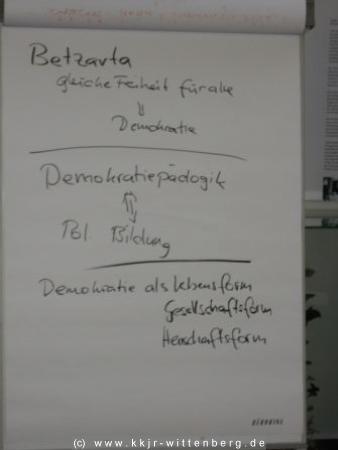 Betzavta
gleiche Freiheit für alle
⇓
Demokratie
Demokratiepädogik
⇕
Pol. Bildung
Demokratie als Lebensform
Gesellschaftsform
Herrschaftsform
(c) www.kkjr-wittenberg.de